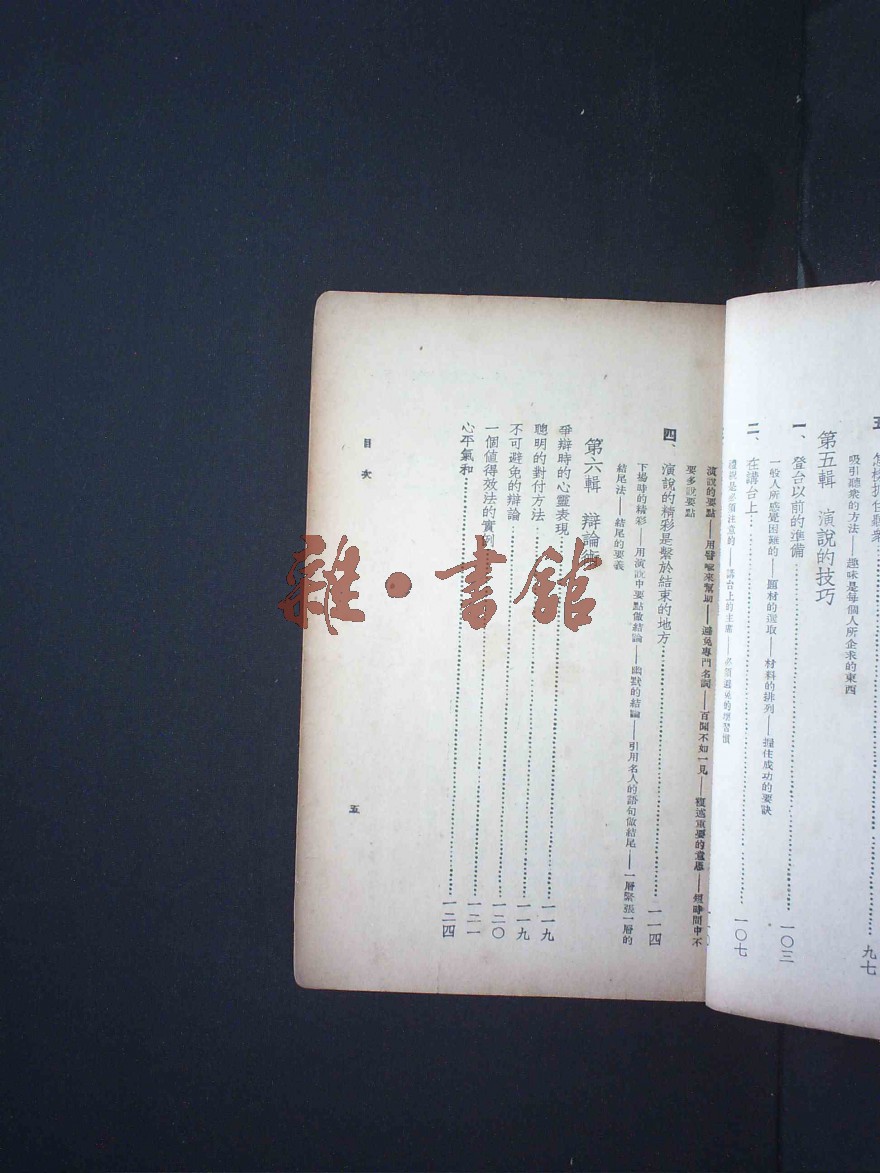 吸引聽衆的方法——趣味是每個人所企求的東西
九七
第五輯 演說的技巧
一、登台以前的準備
一〇三
一般人所感覺困難的——題材的選取——材料的排列——握住成功的要訣
二、在講台上
一〇七
禮貌是必須注意的——講台上的主席——必須避免的壞習慣
演說的要點——用譬喻來幫助——避免專門名詞——百聞不如一見——複述重要的意思——短時間中不
要多說要點
四、演說的精彩是繫於結束的地方
一一四
下場時的精彩——用演說中要點做結論——幽默的結論——引用名人的語句做結尾——一層緊張一層的
結尾法——結尾的要義
第六輯 辯論術
爭辯時的心靈表現
一一九
聰明的對付方法
一一九
不可避免的辯論
一二〇
一個值得效法的實例
一二一
心平氣和
一二四
目次
五
雜·書館